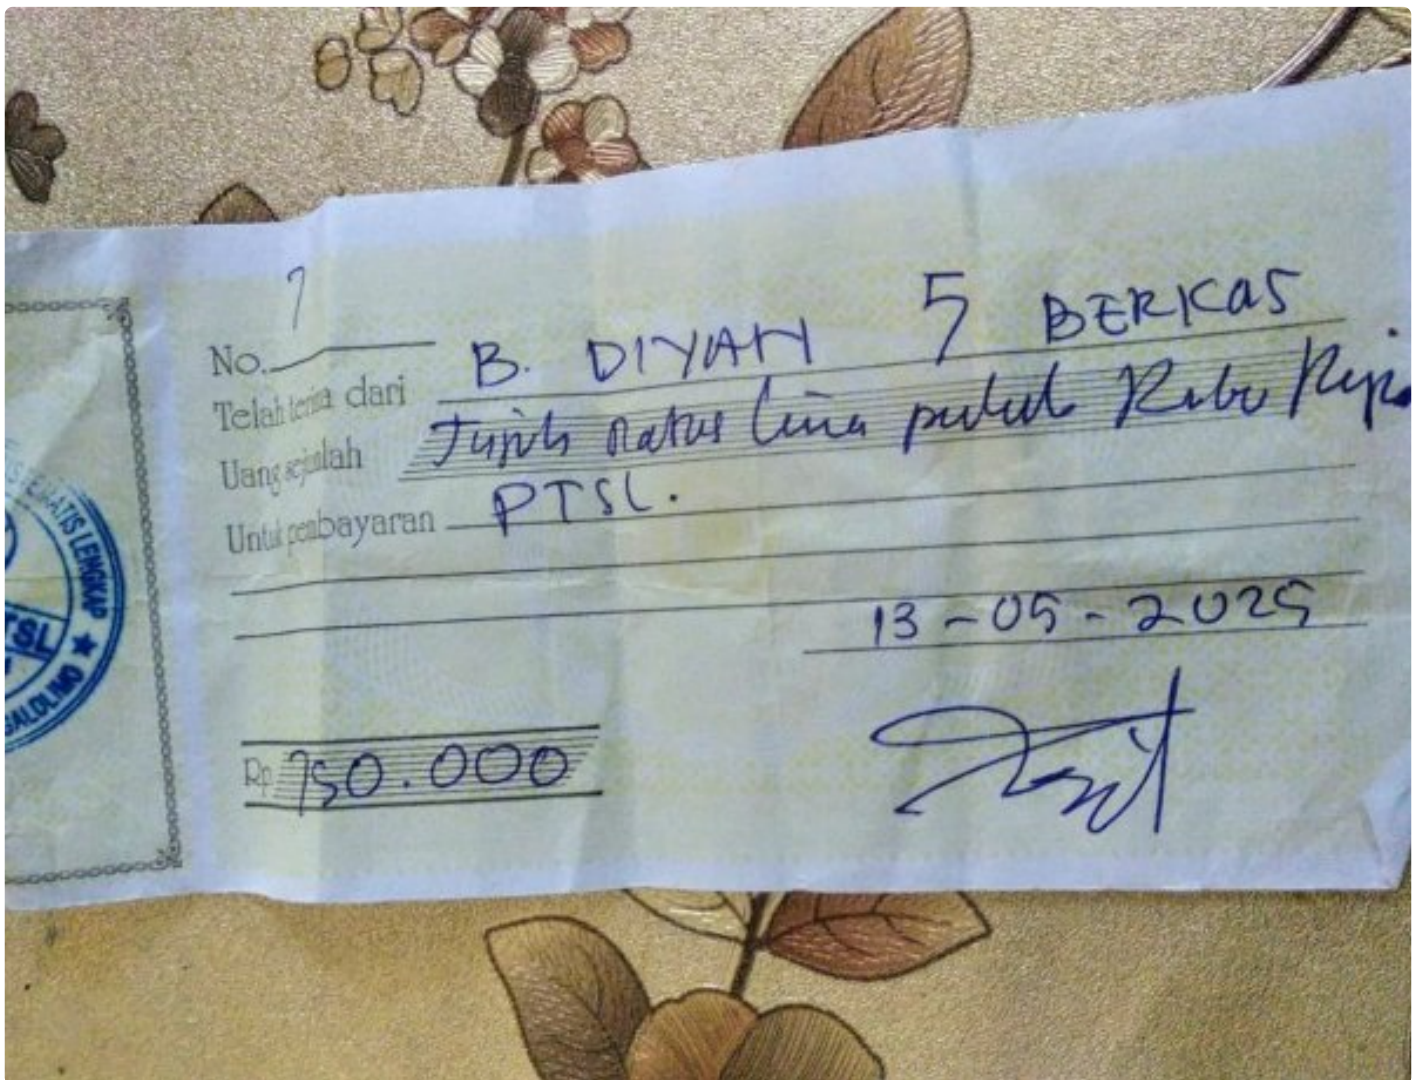 7
No.
Telah terima dari B. DIYAH 5 BERKAS
Uang sejumlah Tujuh Ratus lima puluh Ribu Rupia
Untuk pembayaran PTSL.
13-05-2025
Rp 750.000
EMATIS LENGKAP ★
TSL
SALOLIMO